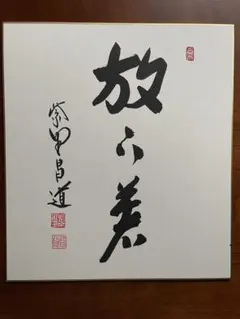 放下着
紫野昌道